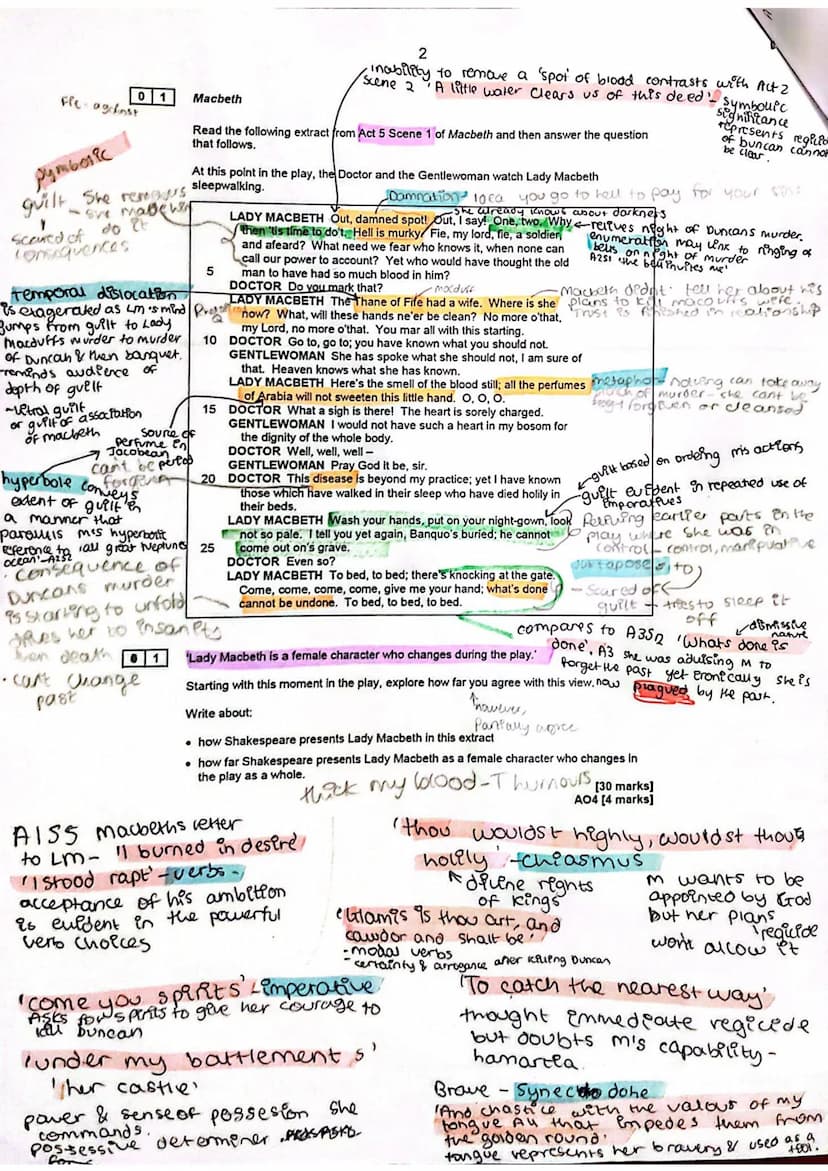 2
inability to remove a 'spot' of blood contrasts with Act 2
scene 2 'A little water clears us of this deed' - symbolic
significance
represents regicide
of Duncan cannot
be clear.
Fie - against
0 1
Macbeth
Read the following extract from Act 5 Scene 1 of Macbeth and then answer the question
that follows.
At this point in the play, the Doctor and the Gentlewoman watch Lady Macbeth
sleepwalking.
symbolic
guilt - she
do it
scared of
consequences
Damnation - idea you go to hell to pay for your sins
she already knows about darkness
LADY MACBETH Out, damned spot! Out, I say! One, two. Why
then 'tis time to do't. Hell is murky. Fie, my lord, fie, a soldier,
and afeard? What need we fear who knows it, when none can
call our power to account? Yet who would have thought the old
5 man to have had so much blood in him?
DOCTOR Do you mark that?
LADY MACBETH The Thane of Fife had a wife. Where is she
now? What, will these hands ne'er be clean? No more o'that,
my Lord, no more o'that. You mar all with this starting.
10 DOCTOR Go to, go to; you have known what you should not.
GENTLEWOMAN She has spoke what she should not, I am sure of
that. Heaven knows what she has known.
LADY MACBETH Here's the smell of the blood still; all the perfumes
of Arabia will not sweeten this little hand. O, O, O.
15 DOCTOR What a sigh is there! The heart is sorely charged.
GENTLEWOMAN I would not have such a heart in my bosom for
the dignity of the whole body.
DOCTOR Well, well, well –
GENTLEWOMAN Pray God it be, sir.
20 DOCTOR This disease is beyond my practice; yet I have known
those which have walked in their sleep who have died holily in
their beds.
LADY MACBETH Wash your hands, put on your night-gown, look
not so pale. I tell you yet again, Banquo's buried; he cannot
25 come out on's grave.
DOCTOR Even so?
LADY MACBETH To bed, to bed; there's knocking at the gate.
Come, come, come, come, give me your hand; what's done
cannot be undone. To bed, to bed, to bed.
relives night of Duncans murder.
enumeration may link to ringing of
bells on night of murder
A2S1 'the bell invites me'
macduff
Macbeth didnt tell her about his
plans to kill macduffs wife.
Trust is finished in relationship
metaphor - nothing can take away
of murder - she cant be
forgiven or cleansed
guilt based on ordering his actions
guilt evident in repeated use of
imperatives
Reliving earlier parts in the
play where she was in
control - control, manipulative
juxtaposes to
- scared of
guilt - tries to sleep it
off
dismissive
nature
compares to A3S2 'Whats done is
done'. A3 she was advising M to
forget the past yet ironically she is
now plagued by the past.
temporal dislocation
is exagerated as LM's mind
jumps from guilt to Lady
Macduffs murder to murder
of Duncan & then banquet.
reminds audience of
depth of guilt
or guilt of association
of macbeth
source of
perfume in
Jacobean
period
cant be
forgiven
hyperbole conveys
extent of guilt in
a manner that
parallels M's hyperbolic
reference to 'all great Neptunes
ocean' - A2S2
- consequence of
Duncans murder
is starting to unfold
drives her to insanity
then death
- cant change
past
0 1
'Lady Macbeth is a female character who changes during the play.'
Starting with this moment in the play, explore how far you agree with this view.
however,
Partially agree
Write about:
• how Shakespeare presents Lady Macbeth in this extract
• how far Shakespeare presents Lady Macbeth as a female character who changes in
the play as a whole.
[30 marks]
AO4 [4 marks]
thick my blood - 7 humours
A1S5 Macbeths letter
to LM - 'I burned in desire'
'I stood rapt' - verbs -
acceptance of his ambition
is evident in the powerful
verb choices
'thou wouldst highly, wouldst thou
holily' - chiasmus
divine rights
of Kings
M wants to be
appointed by God
but her plans
'regicide'
wont allow it
'Glamis is thou art, and
cawdor and shalt be'
- modal verbs
- certainty & arrogance after killing Duncan
'come you spirits' - imperative
Asks for spirits to give her courage to
kill Duncan
'under my battlements'
'her castle'
power & sense of possesion she
commands.
possessive determiner
'To catch the nearest way'
thought immediate regicide
but doubts M's capability -
hamartia
Brave - synecdoche
'And chastice with the valour of my
tongue All that impedes them from
the golden round.'
tongue represents her bravery & used as a
tool.